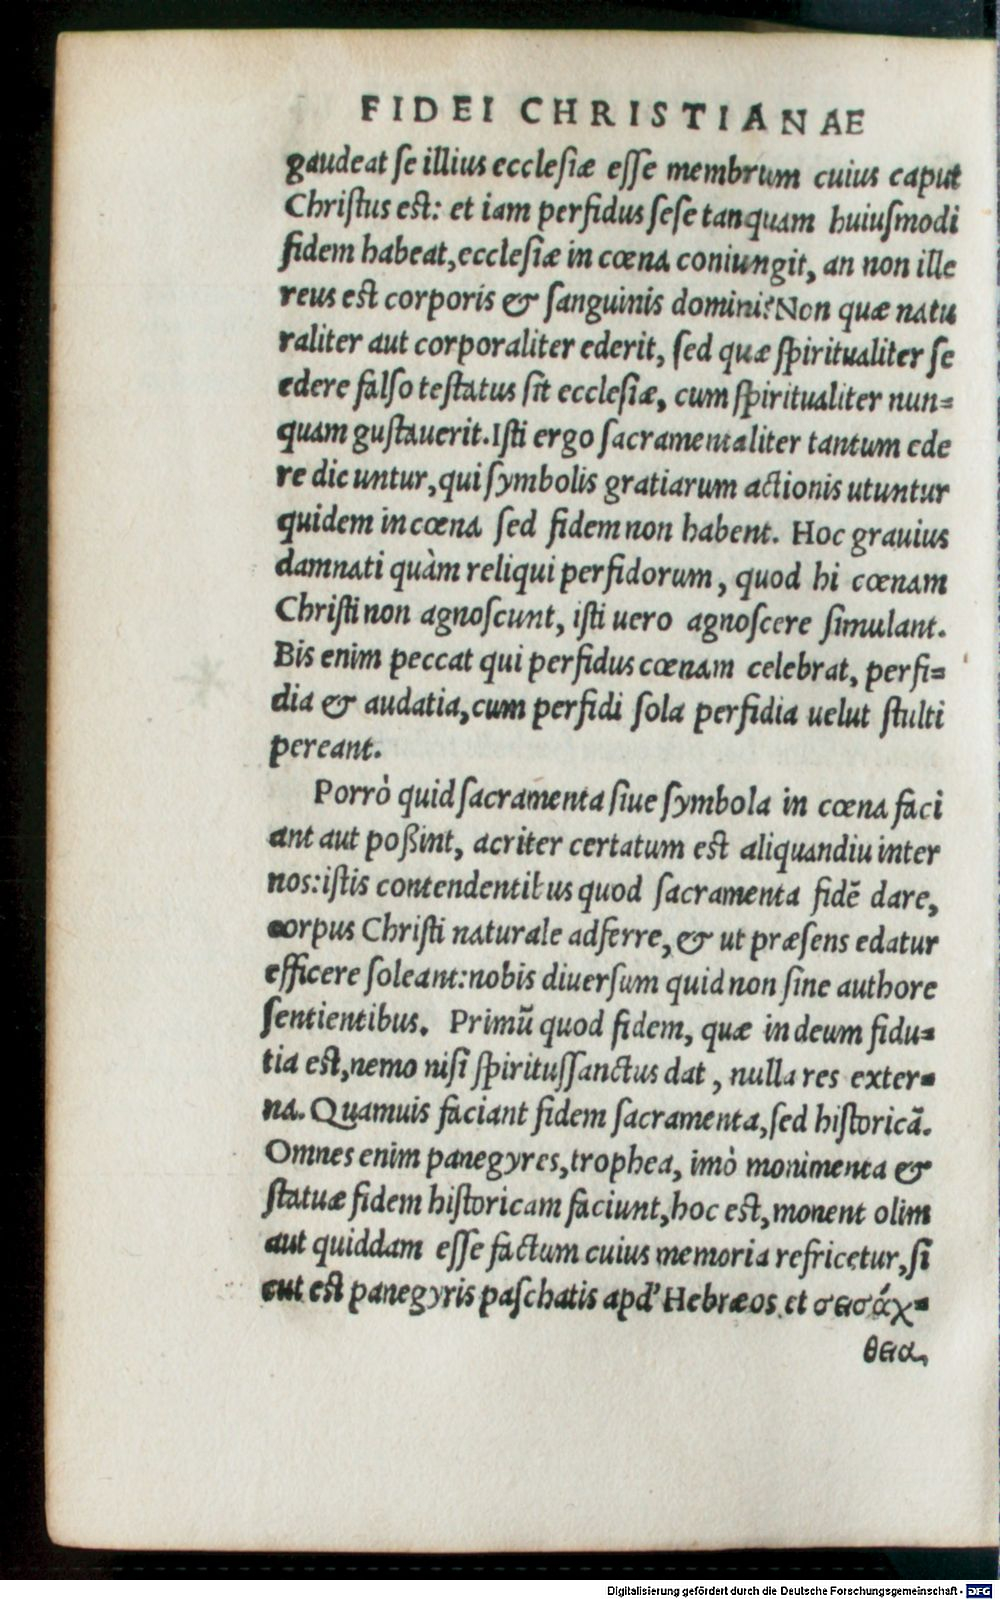 FIDEI CHRISTIANAE
gaudeat se illius ecclesiæ esse membrum cuius caput
Christus est: et iam perfidus sese tanquam huiusmodi
fidem habeat, ecclesiæ in cœna coniungit, an non ille
reus est corporis & sanguinis domini? Non quæ natu
raliter aut corporaliter ederit, sed quæ spiritualiter se
edere falso testatus sit ecclesiæ, cum spiritualiter nun=
quam gustauerit. Isti ergo sacramentaliter tantum ede
re dic untur, qui symbolis gratiarum actionis utuntur
quidem in cœna sed fidem non habent. Hoc grauius
damnati quàm reliqui perfidorum, quod hi cœnam
Christi non agnoscunt, isti uero agnoscere simulant.
Bis enim peccat qui perfidus cœnam celebrat, perfi=
dia & audatia, cum perfidi sola perfidia uelut stulti
pereant.
Porrò quid sacramenta siue symbola in cœna faci
ant aut poßint, acriter certatum est aliquandiu inter
nos: istis contendentibus quod sacramenta fidē dare,
corpus Christi naturale adferre, & ut præsens edatur
efficere soleant: nobis diuersum quid non sine authore
sentientibus. Primū quod fidem, quæ in deum fidu=
tia est, nemo nisi spiritussanctus dat, nulla res exter=
na. Quamuis faciant fidem sacramenta, sed historicā.
Omnes enim panegyres, trophea, imò monimenta &
statuæ fidem historicam faciunt, hoc est, monent olim
aut quiddam esse factum cuius memoria refricetur, si
cut est panegyris paschatis apd' Hebræos et σεισάχ=
θεια,
Digitalisierung gefördert durch die Deutsche Forschungsgemeinschaft - DFG